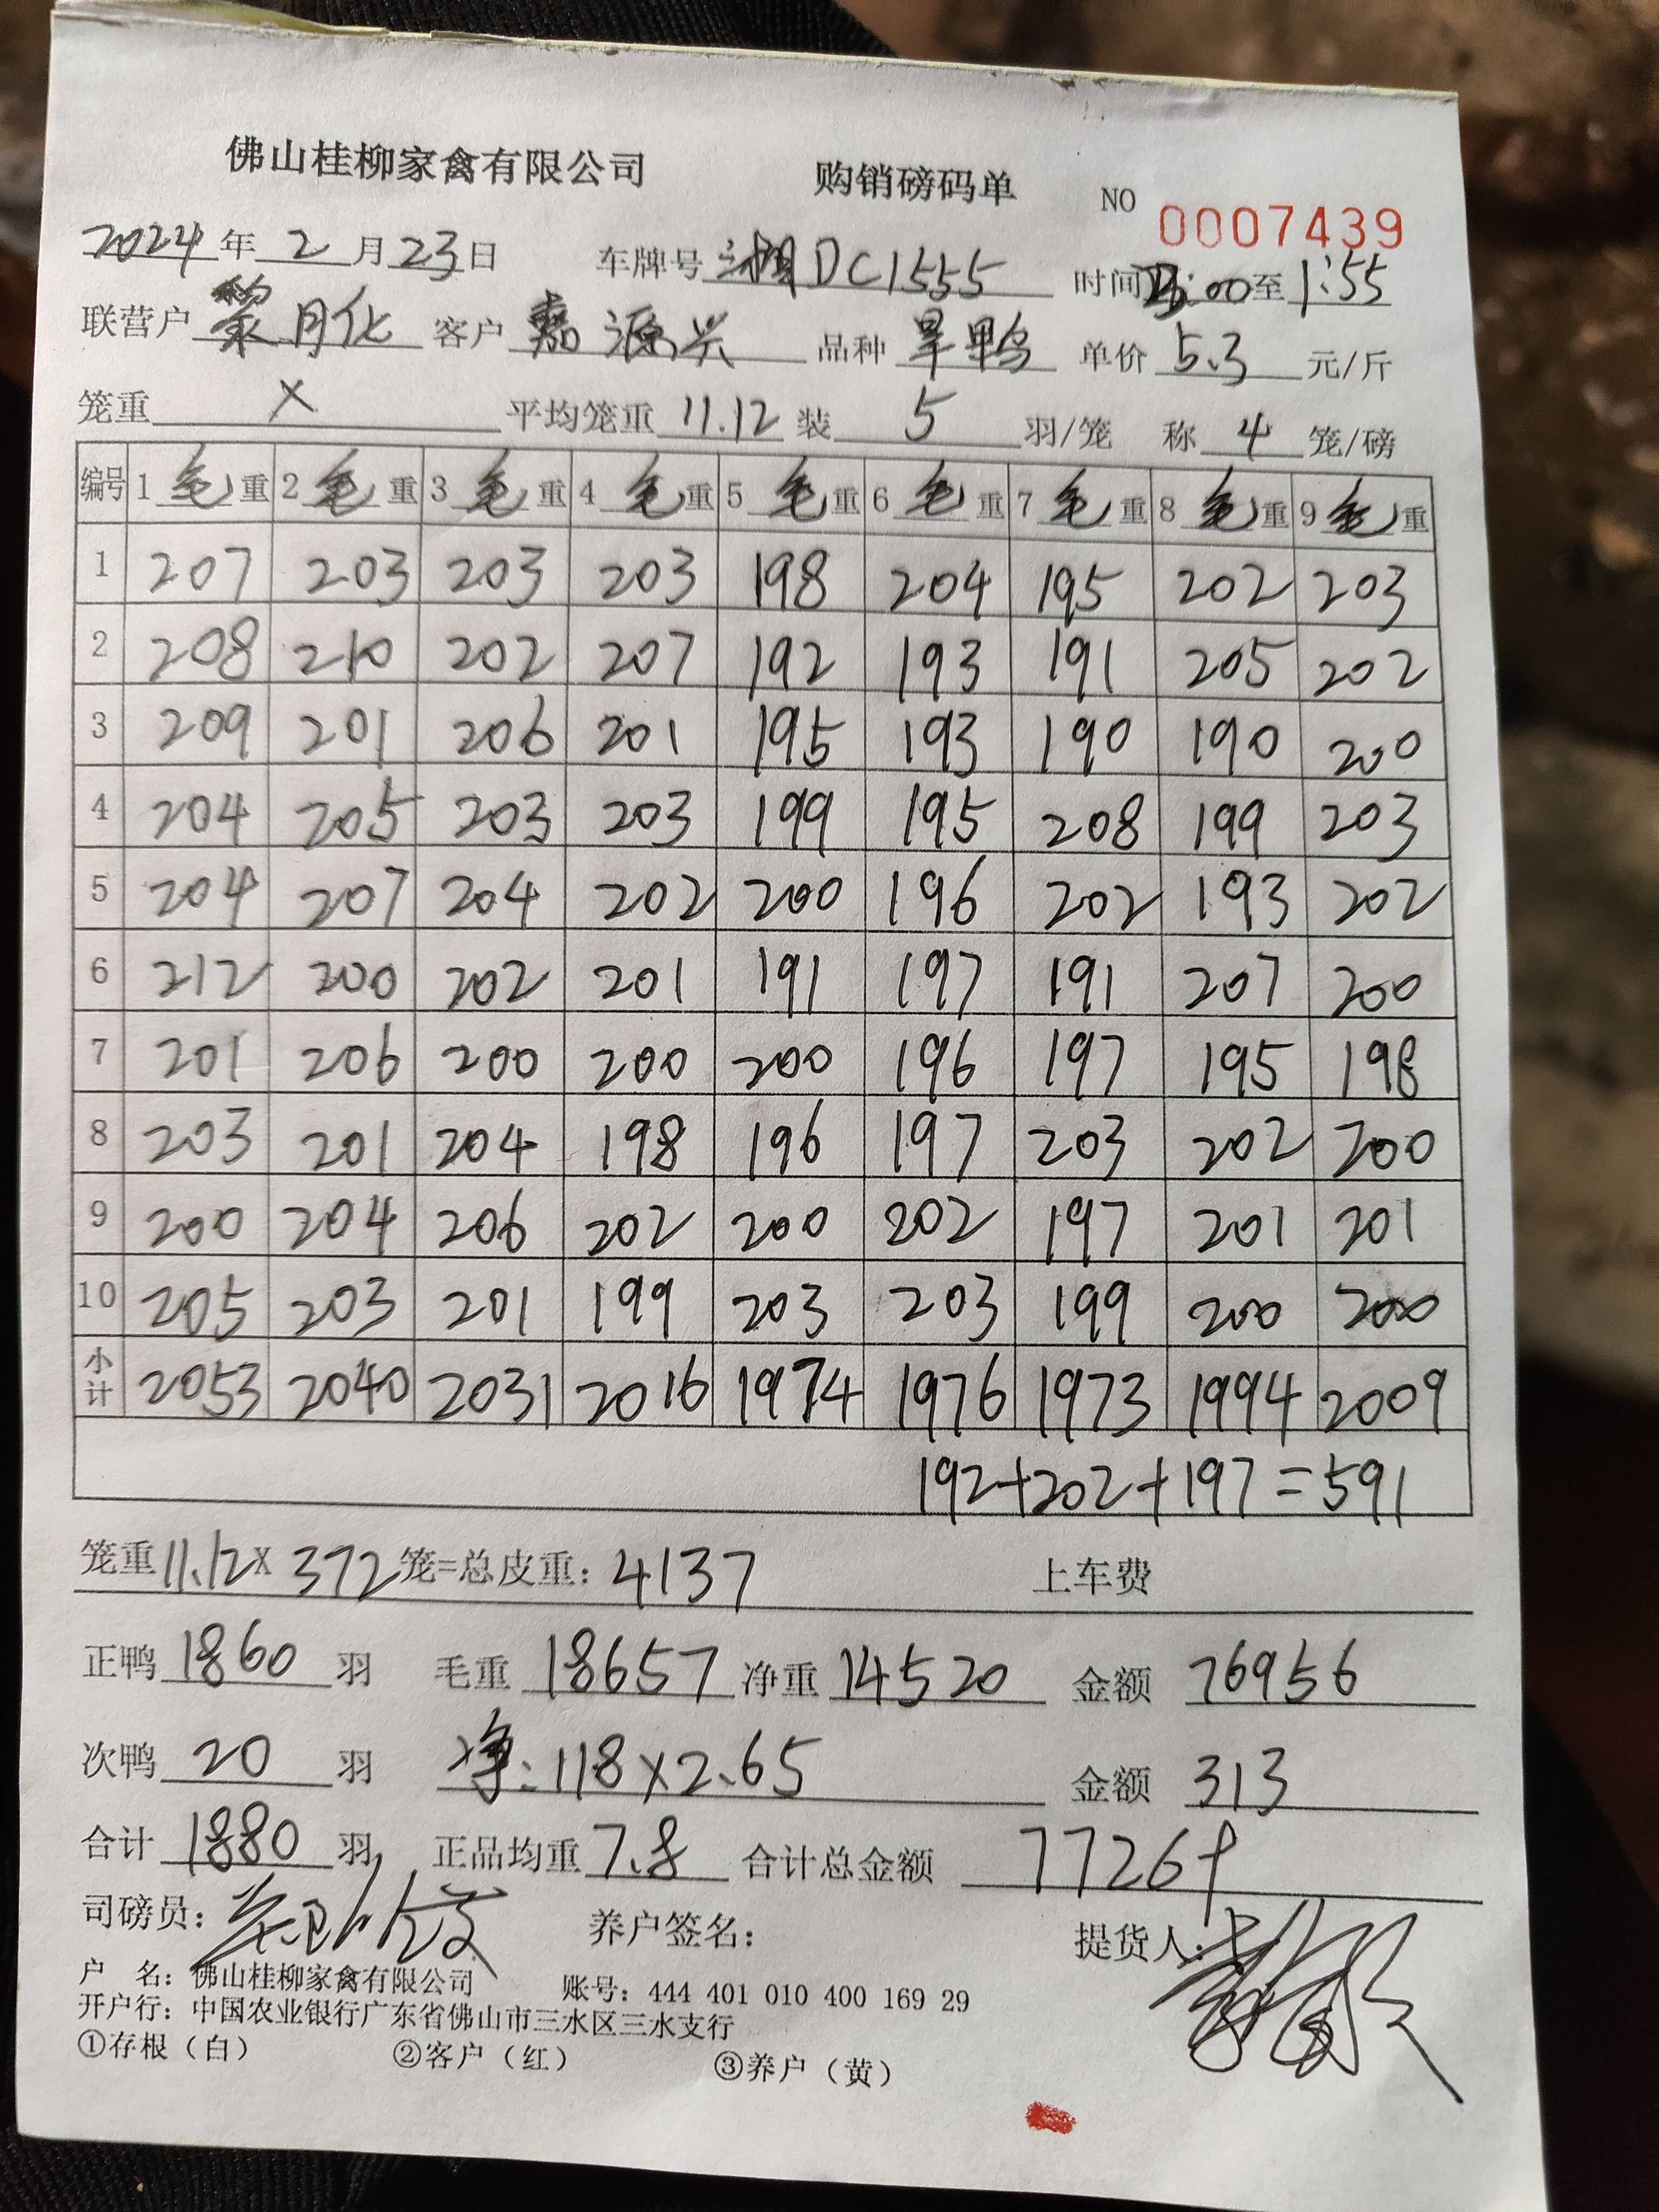 佛山桂柳家禽有限公司 购销磅码单 NO 0007439
2024年2月23日 车牌号 湘DC1555 时间 :00至1:55
联营户 黎月化 客户 嘉源兴 品种 旱鸭 单价 5.3 元/斤
笼重 X 平均笼重 11.12 装 5 羽/笼 称 4 笼/磅
编号 1毛重 2毛重 3毛重 4毛重 5毛重 6毛重 7毛重 8毛重 9毛重
1 207 203 203 203 198 204 195 202 203
2 208 210 202 207 192 193 191 205 202
3 209 201 206 201 195 193 190 190 200
4 204 205 203 203 199 195 208 199 203
5 204 207 204 202 200 196 202 193 202
6 212 200 202 201 191 197 191 207 200
7 201 206 200 200 200 196 197 195 198
8 203 201 204 198 196 197 203 202 200
9 200 204 206 202 200 202 197 201 201
10 205 203 201 199 203 203 199 200 200
小计 2053 2040 2031 2016 1974 1976 1973 1994 2009
192+202+197=591
笼重11.12X372笼=总皮重：4137 上车费
正鸭 1860 羽 毛重 18657 净重 14520 金额 76956
次鸭 20 羽 净:118X2.65 金额 313
合计 1880 羽 正品均重 7.8 合计总金额 77269
司磅员： 养户签名： 提货人：
户 名：佛山桂柳家禽有限公司 账号：444 401 010 400 169 29
开户行：中国农业银行广东省佛山市三水区三水支行
①存根（白） ②客户（红） ③养户（黄）